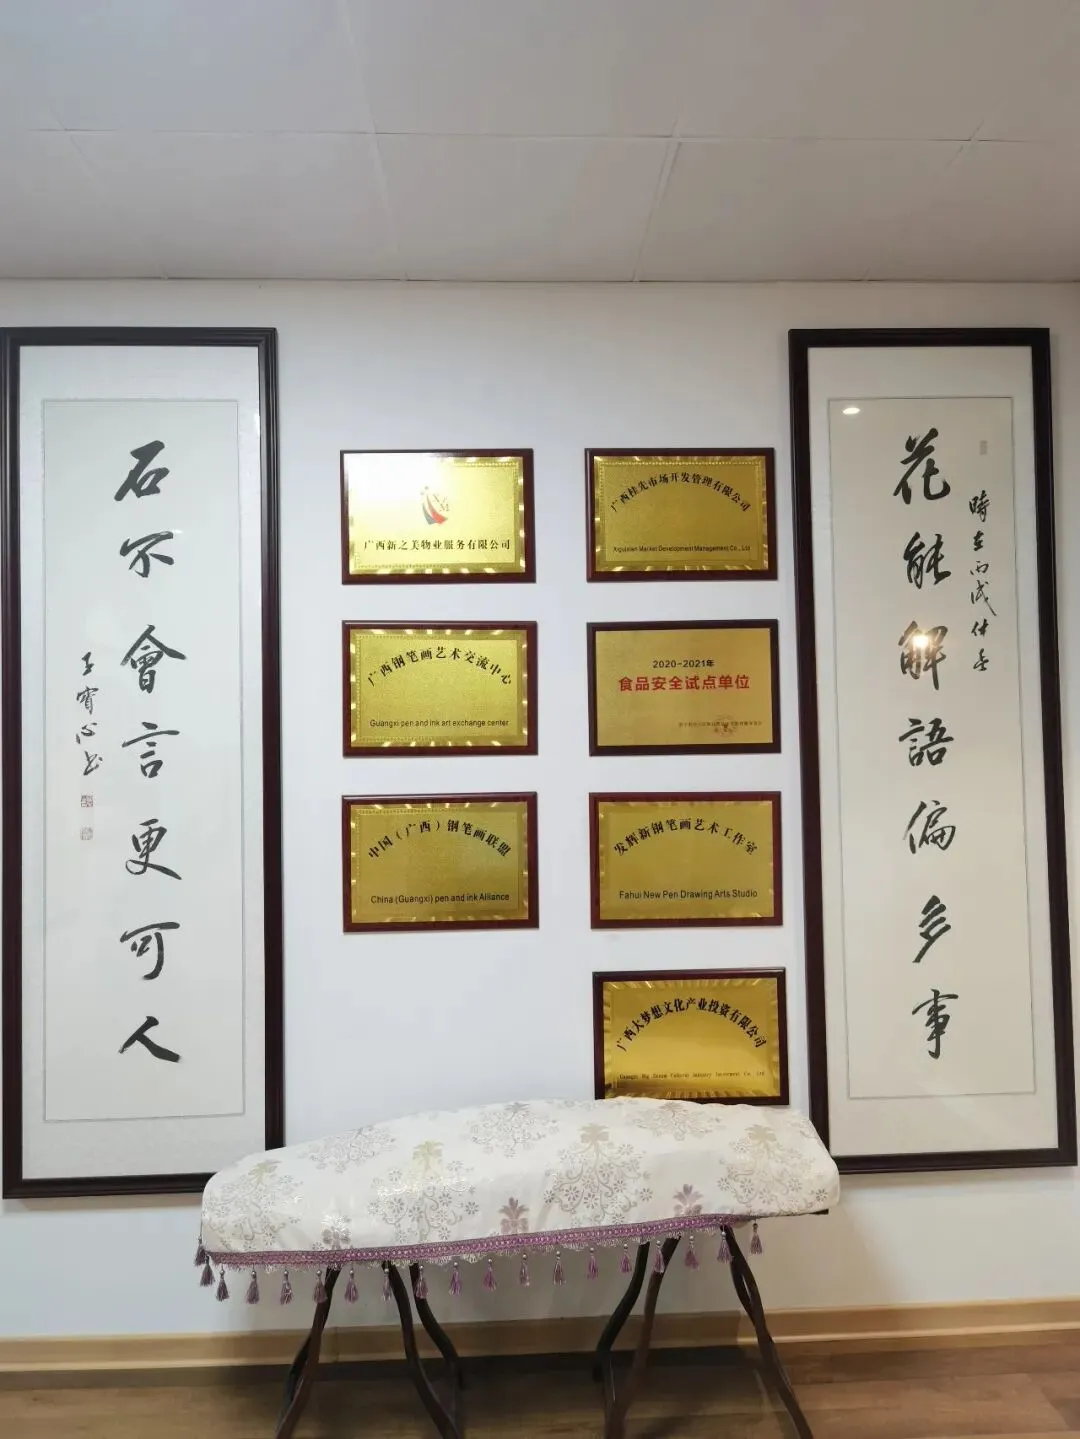 花能解語偏多事
時在丙戌仲冬
石不會言更可人
王寶心书
XM
广西新之美物业服务有限公司
广西桂先市场开发管理有限公司
Market Development Management Co., Ltd
广西钢笔画艺术交流中心
Guangxi pen and ink art exchange center
2020-2021年
食品安全试点单位
中国（广西）钢笔画联盟
China (Guangxi) pen and ink Alliance
发辉新钢笔画艺术工作室
Fahui New Pen Drawing Arts Studio
广西大梦想文化产业投资有限公司
Guangxi Big Dream Cultural Industry Investment Co., Ltd